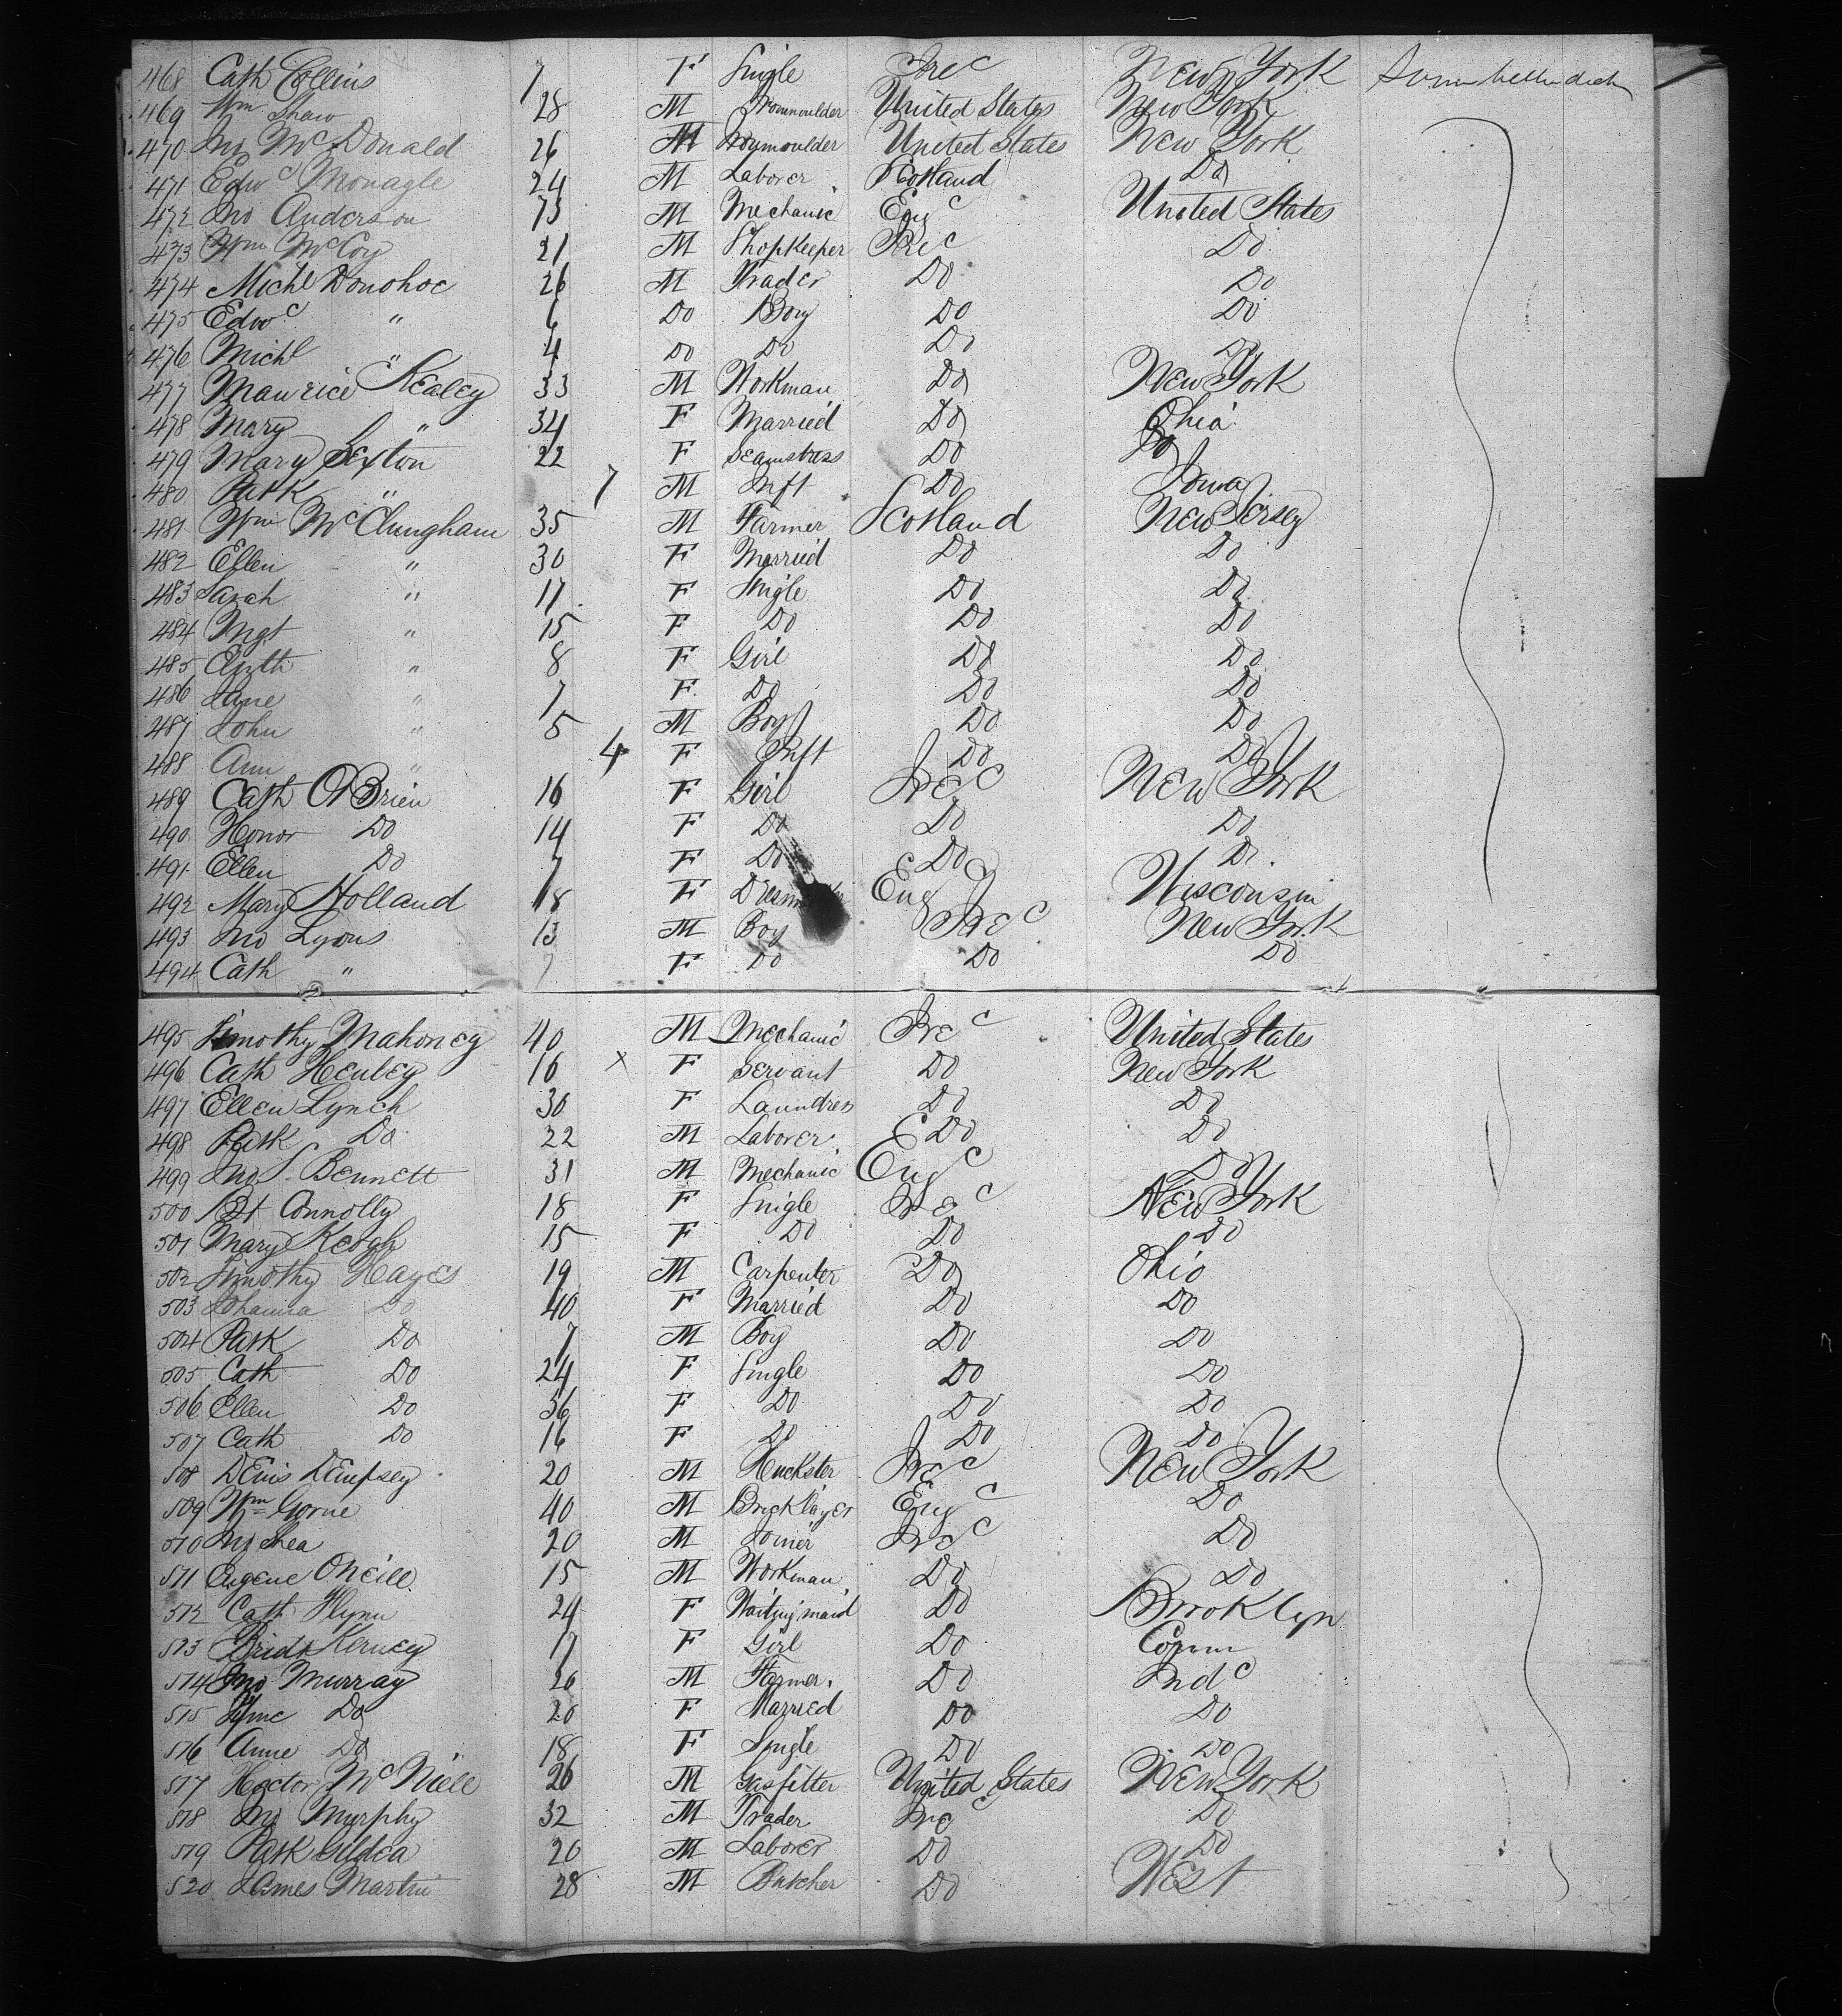 468 Cath Collins 7 F Single Ire^d New York
469 Wm Shaw 28 M Ironmoulder United States New York
470 Jno McDonald 26 M Ironmoulder United States New York
471 Edw^d Monagle 24 M Laborer Scotland Do
472 Jno Anderson 73 M Mechanic Eng^d United States
473 Wm McCoy 21 M Shopkeeper Ire^d Do
474 Michl Donohoe 26 M Trader Do Do
475 Edw^d " 6 Do Boy Do Do
476 Michl " 4 Do Do Do Do
477 Maurice Kealey 33 M Workman Do New York
478 Mary " 34 F Married Do Ohio
479 Mary Sexton 22 F Seamstress Do Do
480 Patk " 7 M Inft Do Iowa
481 Wm McClungham 35 M Farmer Scotland New Jersey
482 Ellen " 30 F Married Do Do
483 Sarah " 17 F Single Do Do
484 Mgt " 15 F Do Do Do
485 Elizth " 8 F Girl Do Do
486 Jane " 7 F Do Do Do
487 John " 5 M Boy Do Do
488 Ann " 4 F Inft Do Do
489 Cath O'Brien 16 F Girl Ire^d New York
490 Honor Do 14 F Do Do Do
491 Ellen Do 7 F Do Do Do
492 Mary Holland 18 F Eng^d Wisconsin
493 Jno Lyons 13 M Boy Ire^d New York
494 Cath " 7 F Do Do Do
495 Timothy Mahoney 40 M Mechanic Ire^d United States
496 Cath Henley 16 x F Servant Do New York
497 Ellen Lynch 30 F Laundress Do Do
498 Patk Do 22 M Laborer Do Do
499 Jno S. Bennett 31 M Mechanic Eng^d Do
500 Bt Connolly 18 F Single Ire^d New York
501 Mary Keogh 15 F Do Do Do
502 Timothy Hayes 19 M Carpenter Do Ohio
503 Johanna Do 40 F Married Do Do
504 Patk Do 7 M Boy Do Do
505 Cath Do 24 F Single Do Do
506 Ellen Do 36 F Do Do Do
507 Cath Do 16 F Do Do Do
508 Denis Dempsey 20 M Huckster Ire^d New York
509 Wm Gorne 40 M Bricklayer Eng^d Do
510 Jno Shea 20 M Joiner Ire^d Do
511 Eugene O'Neill 15 M Workman Do Do
512 Cath Flynn 24 F Waiting maid Do Brooklyn
513 Bridt Kerney 17 F Girl Do Conn
514 Jno Murray 26 M Farmer Do Ind^a
515 Do 20 F Married Do Do
516 Anne Do 18 F Single Do Do
517 Hector McNiell 26 M Gasfitter United States New York
518 Jno Murphy 32 M Trader Ire^d Do
519 Patk Gildea 20 M Laborer Do Do
520 James Martin 28 M Butcher Do West